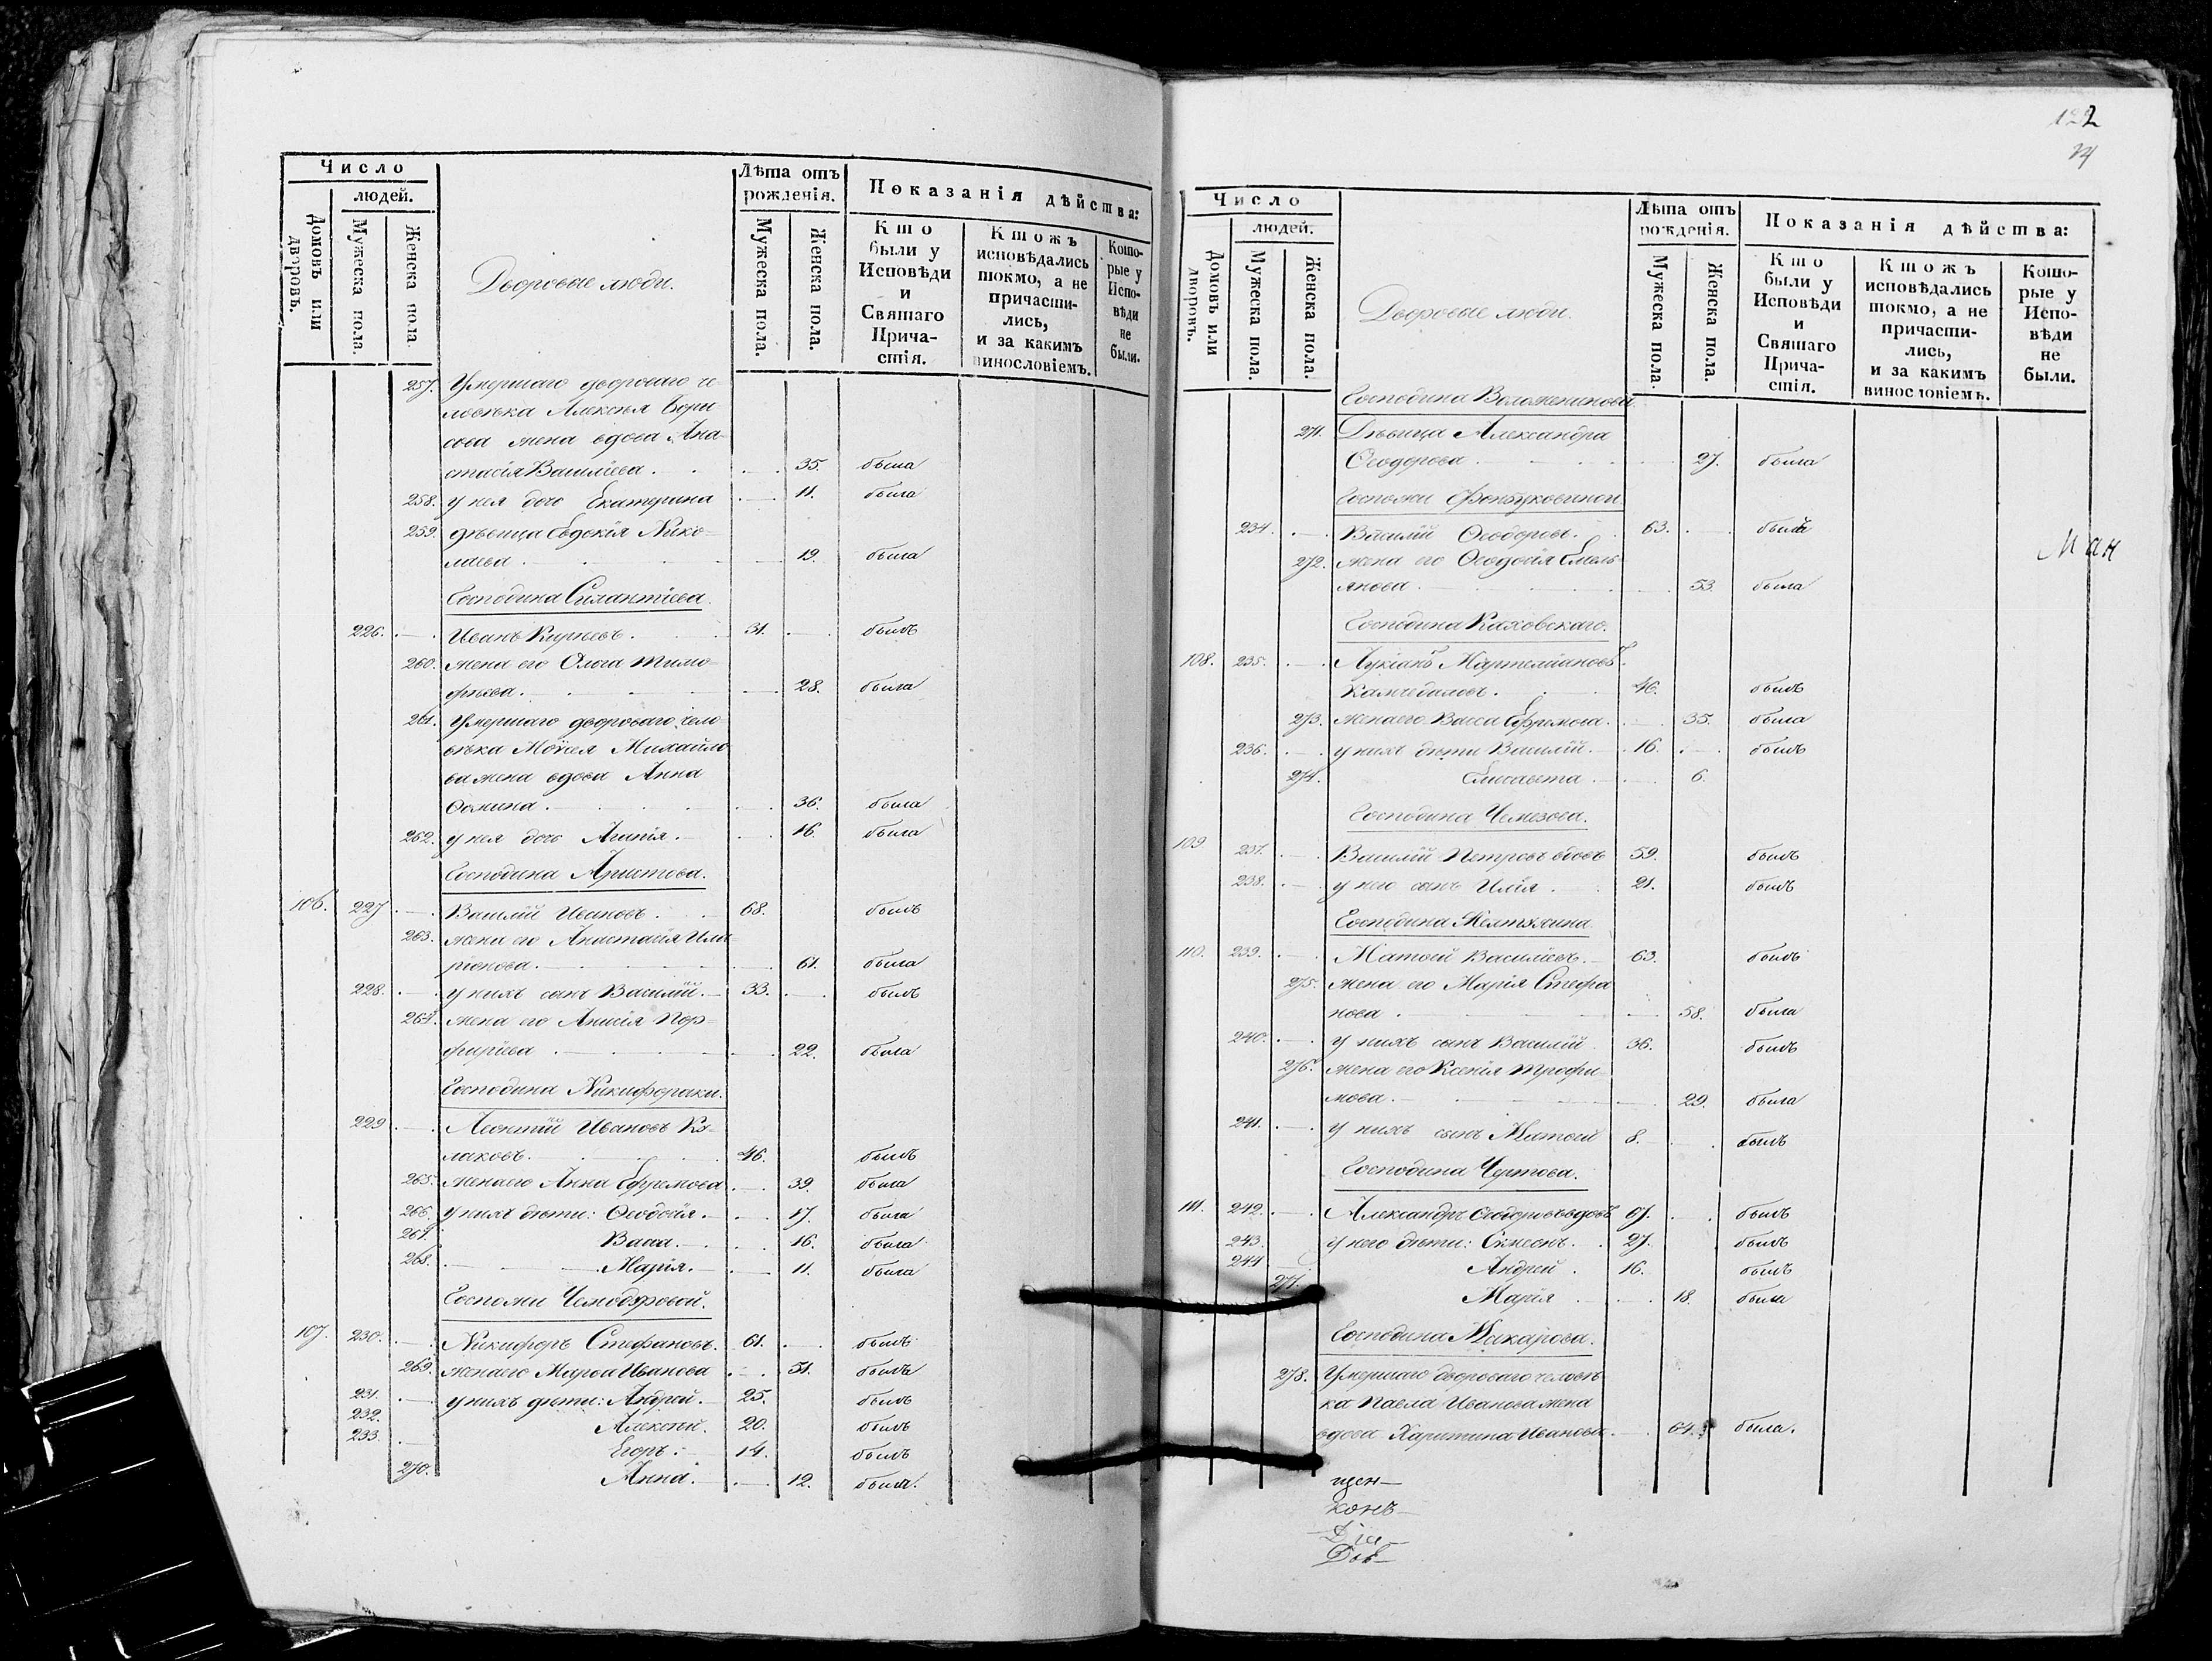 Число
людей.
Домовъ или дворовъ.
Мужеска пола.
Женска пола.
Дворовые люди.
Лѣта отъ рожденія.
Мужеска пола.
Женска пола.
Показанія дѣйства:
Кто были у Исповѣди и Святаго Причастія.
Ктожъ исповѣдались токмо, а не причастились, и за какимъ винословіемъ.
Которые у Исповѣди не были.
257. Умершаго двороваго че-
ловѣка Алексѣя Бори-
сова жена вдова Ана-
стасія Василіева. 35. была
258. у нея дочь Екатерина 11. была
259. дѣвица Евдокія Нико-
лаева. 19. была
Господина Силантіева.
226. Иванъ Киріевъ. 31. былъ
260. жена его Ольга Тимо-
фѣева. 28. была
261. Умершаго двороваго чело-
вѣка Моѵсея Михайло-
ва жена вдова Анна
Ѳомина. 36. была
262. у нея дочь Агапія. 16. была
Господина Аристова.
106. 227 Василій Ивановъ. 68. былъ
263. жена его Анастасія Ила-
ріонова. 61. была
228. у нихъ сынъ Василій. 33. былъ
264. жена его Анисія Пор-
фиріева 22. была
Господина Никифораки.
229 Леонтій Ивановъ Ку-
лаковъ. 46. былъ
265. жена его Анна Ефремова 39. была
266. у нихъ дѣти: Ѳеодосія. 17. была
267. Васса. 16. была
268. Марія. 11. была
Госпожи Чемодуровой.
107. 230. Никифоръ Стефановъ. 61. былъ
269. жена его Марѳа Иванова 51. была
231. у нихъ дѣти: Андрей. 25. былъ
232. Алексѣй. 20. былъ
233. Егоръ. 14. былъ
270. Анна. 12. была.
122
Число
людей.
Домовъ или дворовъ.
Мужеска пола.
Женска пола.
Дворовые люди.
Лѣта отъ рожденія.
Мужеска пола.
Женска пола.
Показанія дѣйства:
Кто были у Исповѣди и Святаго Причастія.
Ктожъ исповѣдались токмо, а не причастились, и за какимъ винословіемъ.
Которые у Исповѣди не были.
Господина Воложенинова
271. Дѣвица Александра
Ѳеодорова 27. была
Госпожи
234. Василій Ѳеодоровъ. 63. былъ
272. жена его Ѳеодосія Емель-
янова. 53. была
Господина Каховскаго.
108. 235. Лукіанъ Мартеміановъ
46. былъ
273. жена его Васса Ефремова. 35. была
236. у нихъ дѣти Василій. 16. былъ
274. Елисавета 6.
Господина Чемезова.
109 237. Василій Петровъ вдовъ 59. былъ
238. у него сынъ Илія. 21. былъ
Господина Желтухина
110. 239. Матѳей Василіевъ. 63. былъ
275. жена его Марія Стефа-
нова. 58. была
240. у нихъ сынъ Василій 36. былъ
276. жена его Ксенія Трофи-
мова. 29. была
241. у нихъ сынъ Матѳей 8. былъ
Господина Чертова.
111. 242. Александръ Ѳеодоровъ вдовъ 67. былъ
243. у него дѣти: Симеонъ. 27. былъ
244 Андрей. 16. былъ
277. Марія 18. была
Господина Макарова.
278. Умершаго двороваго человѣ-
ка Павла Иванова жена
вдова Харитина Иванова. 64. была.
щен-
конъ-
Діа-